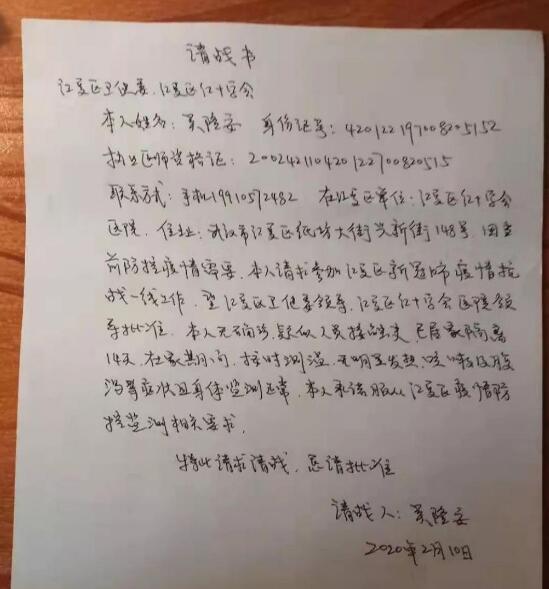 请战书
江夏区卫健委、江夏区红十字会
本人姓名：吴隆安 身份证号：420122197008205152
执业医师资格证：200242110420122700820515
联系方式：手机19910572482 在江夏区单位：江夏区红十字会
医院，住址：武汉市江夏区纸坊大街兴新街148号，因当
前防控疫情需要，本人请求参加江夏区新冠肺疫情抗
战一线工作，望江夏区卫健委领导，江夏区红十字会医院领
导批准。本人无确诊，疑似人员接触史，已居家隔离
14天，在家期间，按时测温，无明显发热，咳嗽及腹
泻等症状且身体监测正常，本人承诺服从江夏区疫情防
控监测相关要求。
特此请求请战，恳请批准
请战人：吴隆安
2020年2月10日